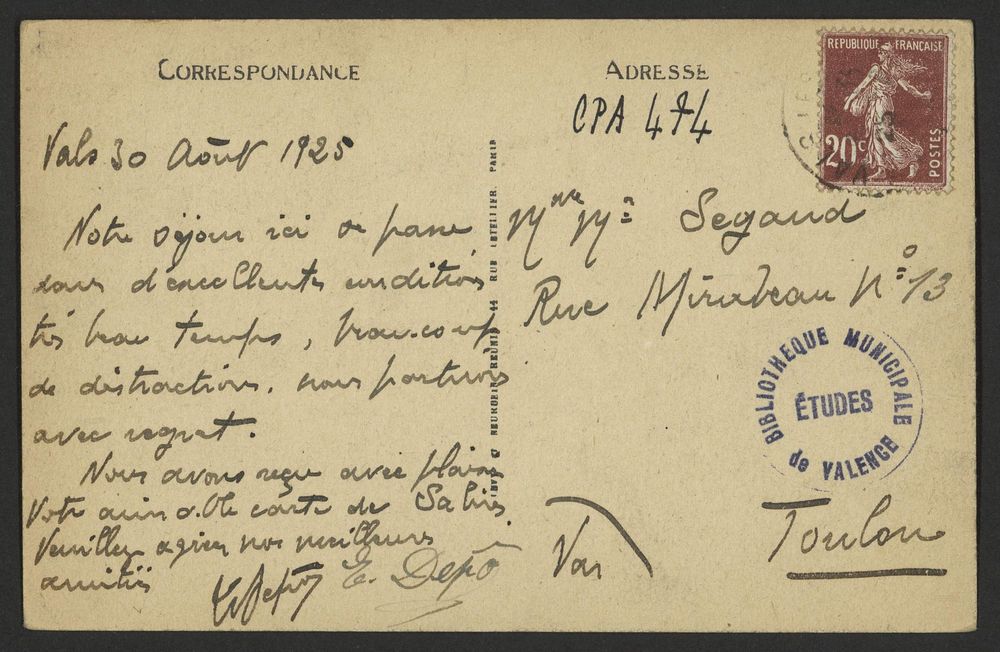 CORRESPONDANCE
ADRESSE
CPA 474
RÉPUBLIQUE FRANÇAISE
20c
POSTES
Vals 30 Août 1925
Notre séjour ici se passe
dans d'excellentes conditions
très beau temps, beaucoup
de distractions. nous partirons
avec regret.
Nous avons reçu avec plaisir
Votre aimable carte de Salins
Veuillez agréer nos meilleures
amitiés
E. Depo
Mme Segaud
Rue Mirabeau No 13
Toulon
Var
BIBLIOTHEQUE MUNICIPALE
ÉTUDES
de VALENCE
NEURDEIN RÉUNIS 44 RUE LETELLIER. PARIS